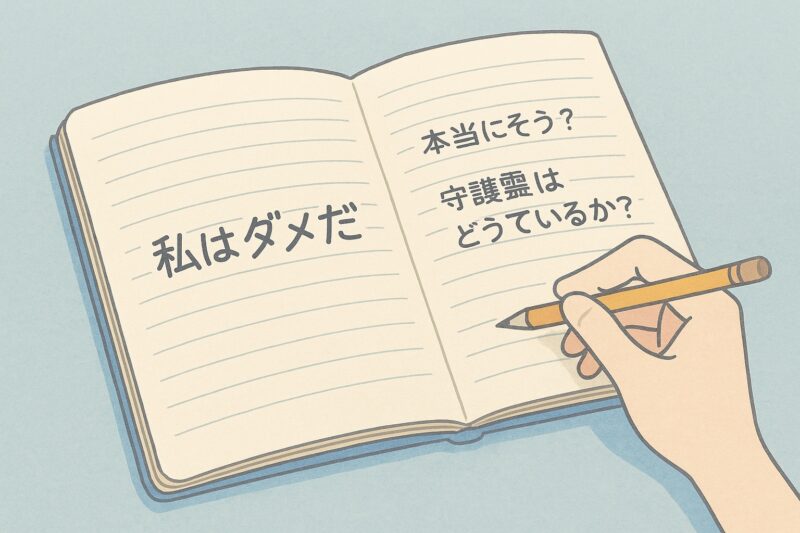 私はダメだ
本当にそう？
守護霊は
どうているか?